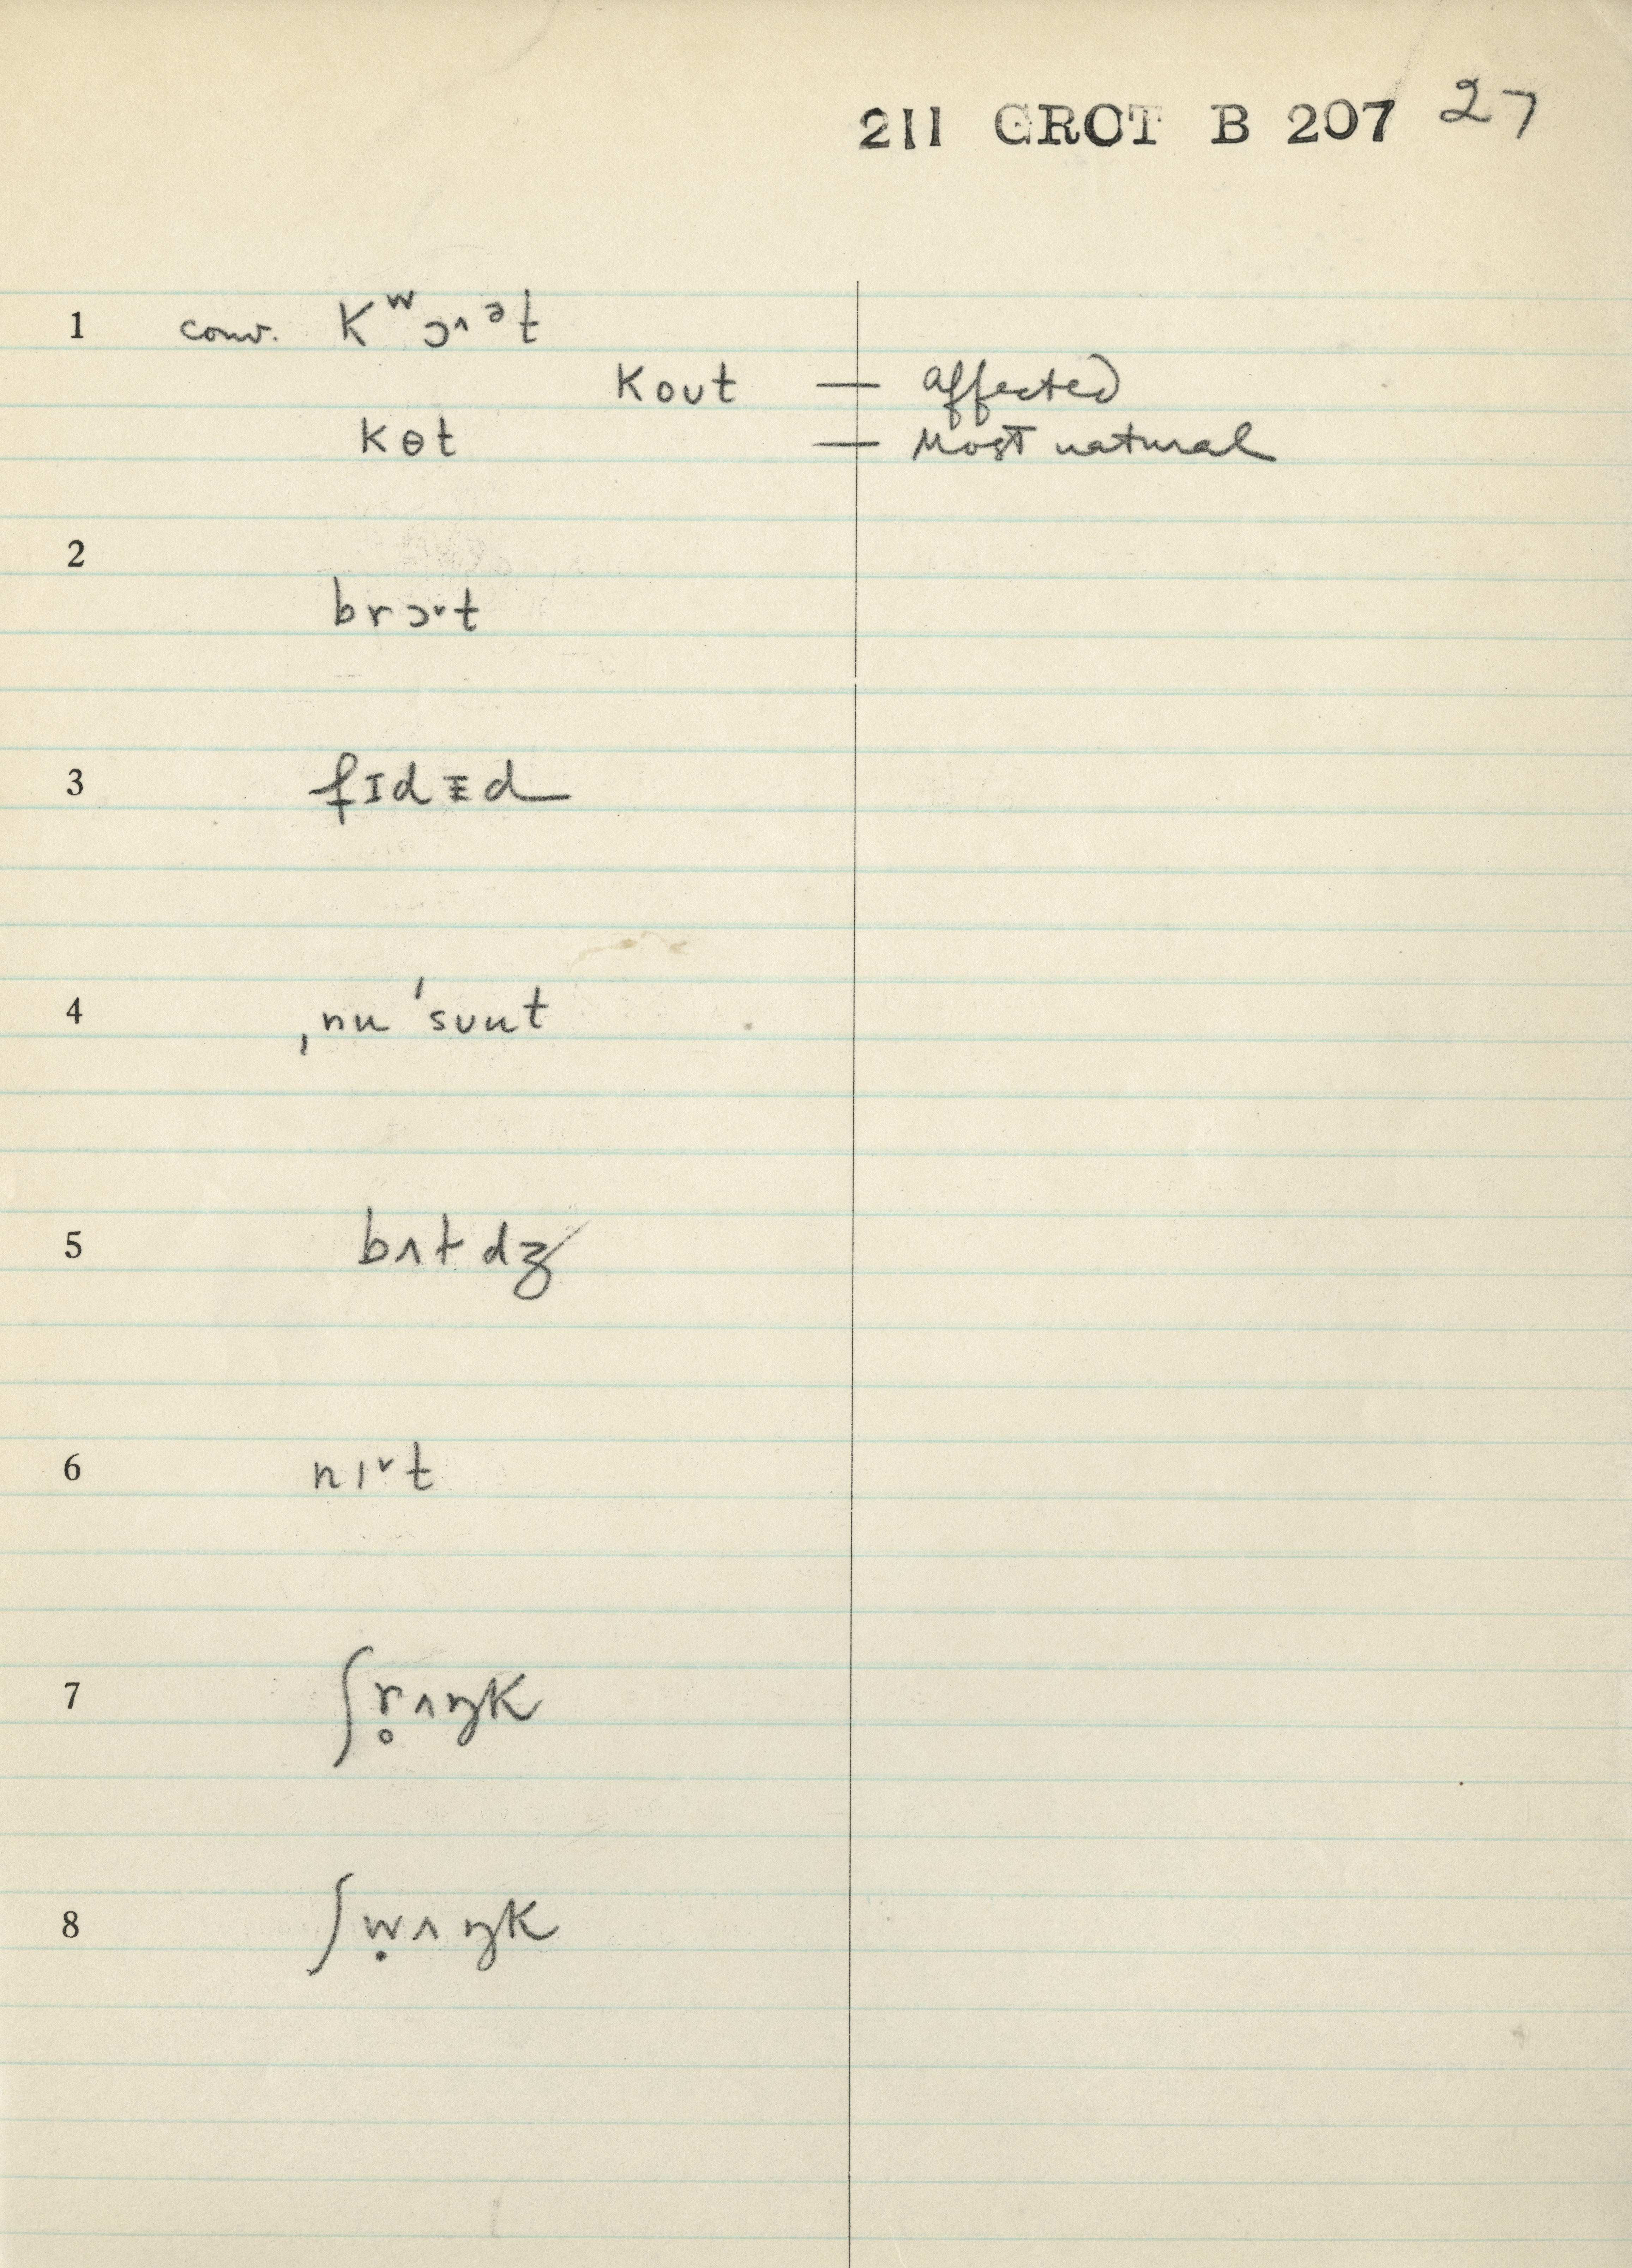 211 GROT B 207 27
1 conv. Kʷɔ˄ᵊt
Kout — affected
Kɵt — Most natural
2
brɔ˅t
3 fɪdɪ̵d
4 ˌnu ˈsuut
5 bʌtdʒ
6 nı˅t
7 ʃr̥ʌŋK
8 ʃẉʌŋK